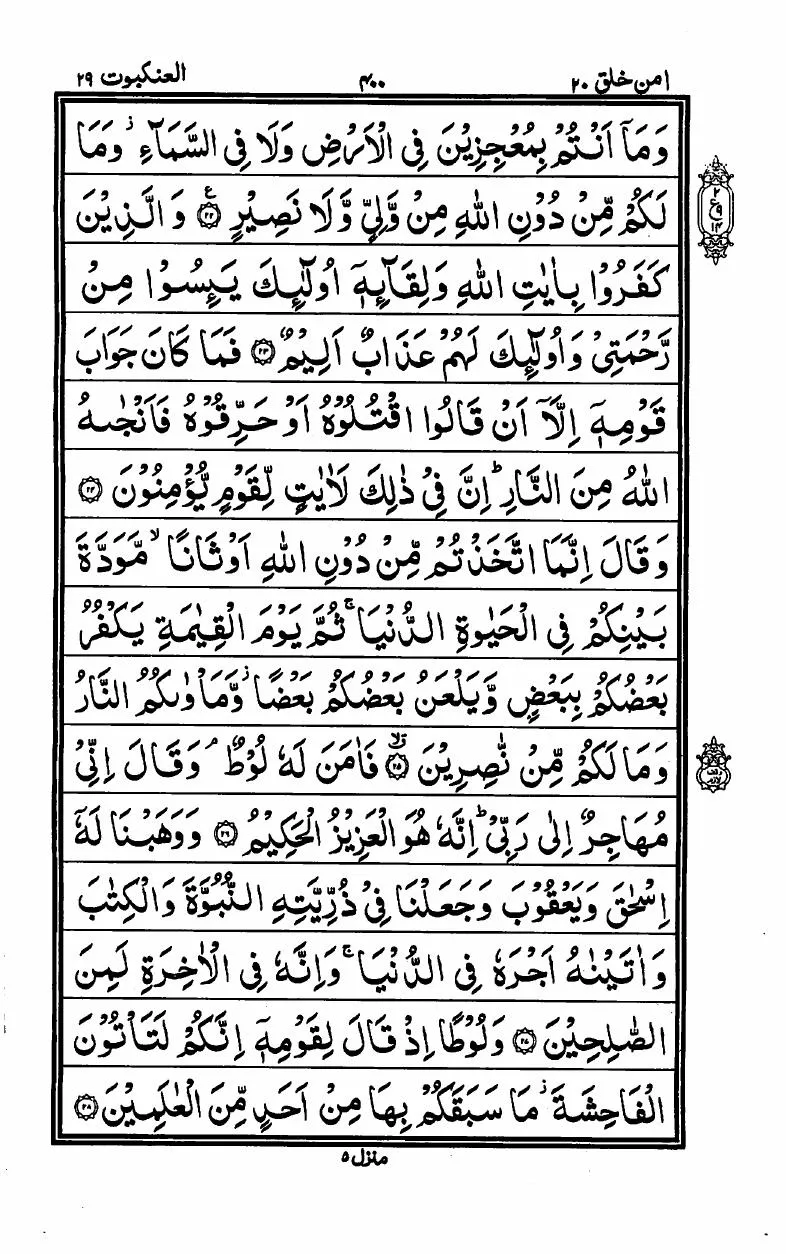 امن خلق ۲۰
۴۰۰
العنکبوت ۲۹
وَمَآ اَنْتُمْ بِمُعْجِزِيْنَ فِى الْاَرْضِ وَلَا فِى السَّمَآءِ ۫ وَمَا
لَكُمْ مِّنْ دُوْنِ اللّٰهِ مِنْ وَّلِيٍّ وَّلَا نَصِيْرٍ ۧ ﴿۲۲﴾ وَالَّذِيْنَ
كَفَرُوْا بِاٰيٰتِ اللّٰهِ وَلِقَآئِهٖٓ اُولٰٓئِكَ يَئِسُوْا مِنْ
رَّحْمَتِىْ وَاُولٰٓئِكَ لَهُمْ عَذَابٌ اَلِيْمٌ ﴿۲۳﴾ فَمَا كَانَ جَوَابَ
قَوْمِهٖٓ اِلَّآ اَنْ قَالُوا اقْتُلُوْهُ اَوْ حَرِّقُوْهُ فَاَنْجٰىهُ
اللّٰهُ مِنَ النَّارِ ؕ اِنَّ فِىْ ذٰلِكَ لَاٰيٰتٍ لِّقَوْمٍ يُّؤْمِنُوْنَ ﴿۲۴﴾
وَقَالَ اِنَّمَا اتَّخَذْتُمْ مِّنْ دُوْنِ اللّٰهِ اَوْثَانًا ۙ مَّوَدَّةَ
بَيْنِكُمْ فِى الْحَيٰوةِ الدُّنْيَا ۚ ثُمَّ يَوْمَ الْقِيٰمَةِ يَكْفُرُ
بَعْضُكُمْ بِبَعْضٍ وَّيَلْعَنُ بَعْضُكُمْ بَعْضًا ؗ وَّمَاْوٰىكُمُ النَّارُ
وَمَا لَكُمْ مِّنْ نّٰصِرِيْنَ ﴿۲۵﴾ فَاٰمَنَ لَهٗ لُوْطٌ ۘ وَقَالَ اِنِّىْ
مُهَاجِرٌ اِلٰى رَبِّىْ ؕ اِنَّهٗ هُوَ الْعَزِيْزُ الْحَكِيْمُ ﴿۲۶﴾ وَوَهَبْنَا لَهٗٓ
اِسْحٰقَ وَيَعْقُوْبَ وَجَعَلْنَا فِىْ ذُرِّيَّتِهِ النُّبُوَّةَ وَالْكِتٰبَ
وَاٰتَيْنٰهُ اَجْرَهٗ فِى الدُّنْيَا ۚ وَاِنَّهٗ فِى الْاٰخِرَةِ لَمِنَ
الصّٰلِحِيْنَ ﴿۲۷﴾ وَلُوْطًا اِذْ قَالَ لِقَوْمِهٖٓ اِنَّكُمْ لَتَاْتُوْنَ
الْفَاحِشَةَ ؗ مَا سَبَقَكُمْ بِهَا مِنْ اَحَدٍ مِّنَ الْعٰلَمِيْنَ ﴿۲۸﴾
منزل ۵